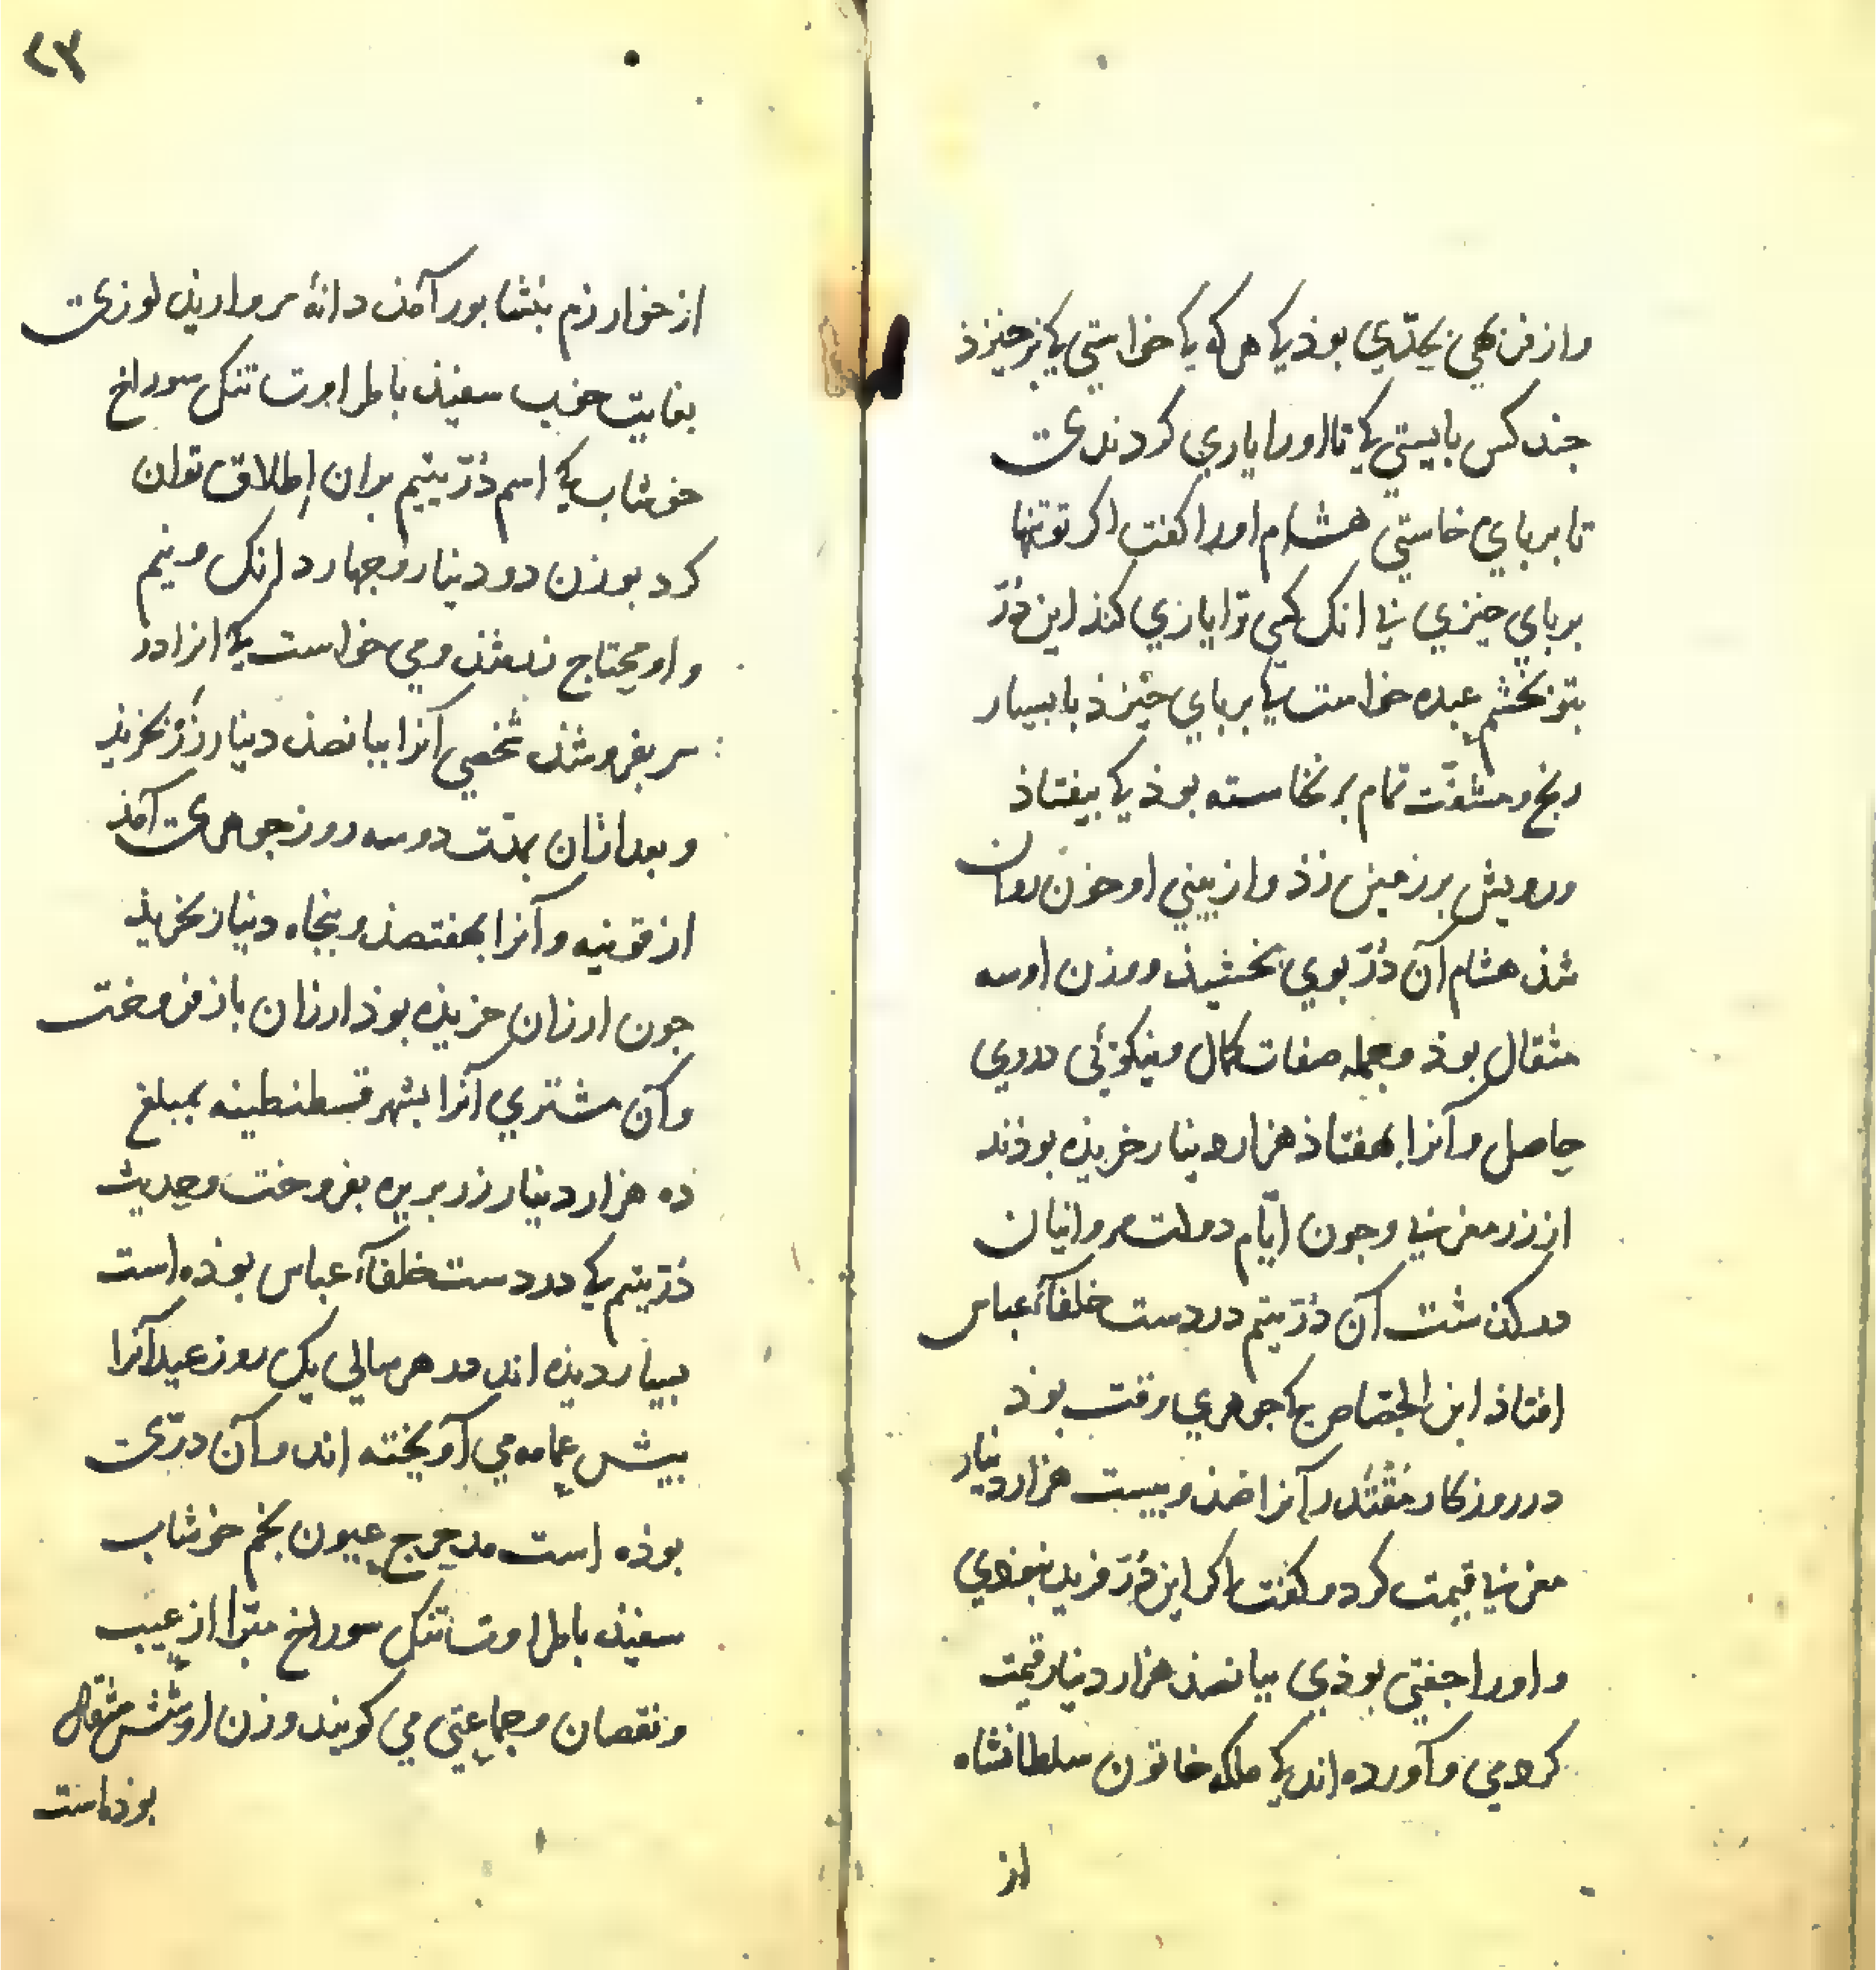 واز فربهی بحدّی بوذ کی هر که کی خواستی کی برخیزذ
جند کس بایستی کی تا او را یاری کردندی
تا بر بای خاستی هشام او را کفت اکر تو تنها
بر بای خیزی بی انک کسی ترا یاری کند این دُرّ
بتو بخشم عبده خواست کی بر بای خیزذ با بسیار
رنج و مشقّت تمام بر نخاسته بوذ کی بیفتاذ
و رویش بر زمین زذ و از بینی او خون روان
شذ هشام آن دُرّ بوی بخشیذ و وزن او سه
مثقال بوذ و بجمله صفات کمال و نیکوئی در وی
حاصل و آنرا بهفتاذ هزار دینار خریذه بوذند
از زر مغربی و جون ایّام دولت مروانیان
در کذشت آن دُرّ یتیم در دست خلفآء عباس
افتاذ ابن الجصّاص کی جوهری وقت بوذ
در روزکار مقتدر آنرا صذ و بیست هزار دینار
مغربی قیمت کرد و کفت اکر این دُرّ فرید نبوذی
و او را جفتی بوذی ببانصذ هزار دینار قیمت
کردمی و آورده اند کی ملکه خاتون سلطانشاه
از
۲۳
از خوارزم بنشابور آمذ دانهٔ مروارید لوزی
بغایت خوب سفیذ با طراوت تنک سوراخ
خوشاب کی اسم دُرّ یتیم بر ان اطلاق توان
کرد بوزن دو دینار و جهار دانک و نیم
و او محتاج نفقه شذ و می خواست کی انرا در
سر بفروشذ شخصی آنرا ببانصذ دینار زر بخریذ
و بعد از ان بمدّت دو سه روز جوهری آمذ
از قونیه و آنرا بهفتصذ و بنجاه دینار بخریذ
جون ارزان خریذه بوذ ارزان باز فروخت
و آن مشتری آنرا بشهر قسطنطینه بمبلغ
ده هزار دینار زر بربره بفروخت و حدیث
دُرّ یتیم کی در دست خلفآء عباس بوذه است
بسیار دیذه اند و در هر سالی یک روز عید آنرا
بیش عمامه می آویخته اند و آن درّی
بوذه است مدحرج عیون بخم خوشاب
سفیذ با طراوت تنک سوراخ مبّرا از عیب
و نقصان و جماعتی می کویند وزن او شش مثقال
بوذه است